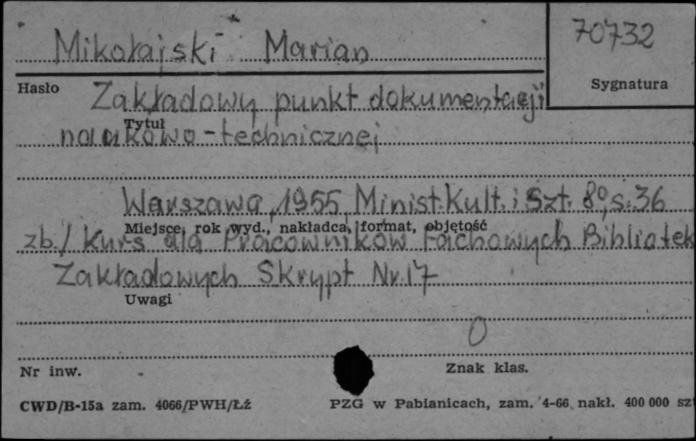 Mikołajski Marian
70732
Hasło
Sygnatura
Zakładowy punkt dokumentacji
Tytuł
naukowo-technicznej
Warszawa, 1955, Minist. Kult. i Szt. 8º, s. 36
Miejsce, rok wyd., nakładca, format, objętość
zb./ Kurs dla Pracowników Fachowych Bibliotek
Zakładowych Skrypt Nr. 17
Uwagi
0
Nr inw.
Znak klas.
CWD/B-15a zam. 4066/PWH/Łź
PZG w Pabianicach, zam. 4-66 nakł. 400 000 szt